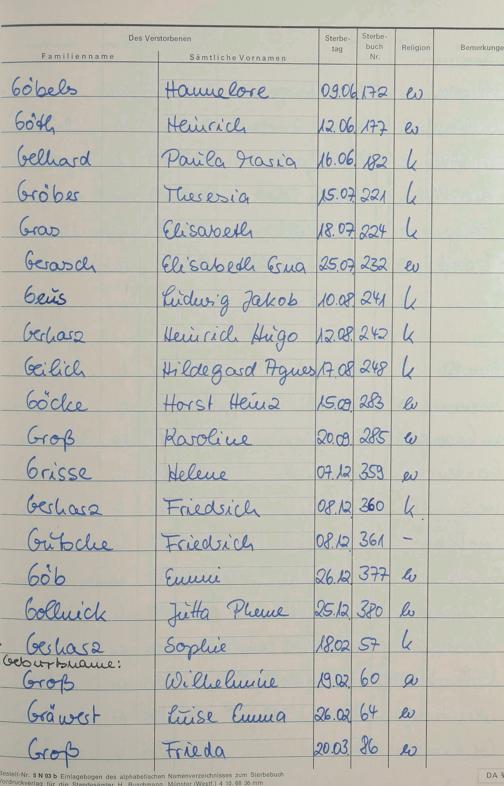 Des Verstorbenen
Familienname Sämtliche Vornamen Sterbe-tag Sterbe-buch Nr. Religion Bemerkunge
Göbels Hannelore 09.06 172 ev
Göth Heinrich 12.06 177 ev
Gelhard Paula Maria 16.06 182 k
Gröber Theresia 15.07 221 k
Gras Elisabeth 18.07 224 k
Gerasch Elisabeth Erna 25.07 232 ev
Geus Ludwig Jakob 10.08 241 k
Gerharz Heinrich Hugo 12.08. 242 k
Geilich Hildegard Agnes 17.08 248 k
Göcke Horst Heinz 15.09. 283 ev
Groß Karoline 20.09. 285 ev
Grisse Helene 07.12 359 ev
Gerharz Friedrich 08.12 360 k
Gutsche Friedrich 08.12 361 -
Göb Emmi 26.12 377 ev
Gollnick Jutta 25.12 380 ev
Gerharz Sophie 18.02 57 k
Geburtsname:
Groß Wilhelmine 19.02 60
Gräwert Luise Emma 26.02 64 ev
Groß Frieda 20.03 86 ev
Bestell-Nr. S N 93 b Einlagebogen des alphabetischen Namenverzeichnisses zum Sterbebuch DA
Vordruckverlag für die Standesämter H. Buschmann, Münster (Westf.)